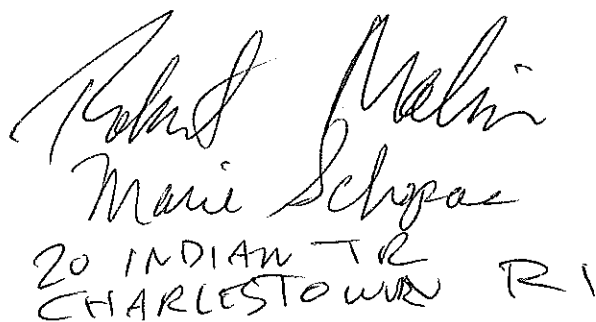 Robert Malin
Marie Schopac
20 INDIAN TR
CHARLESTOWN RI